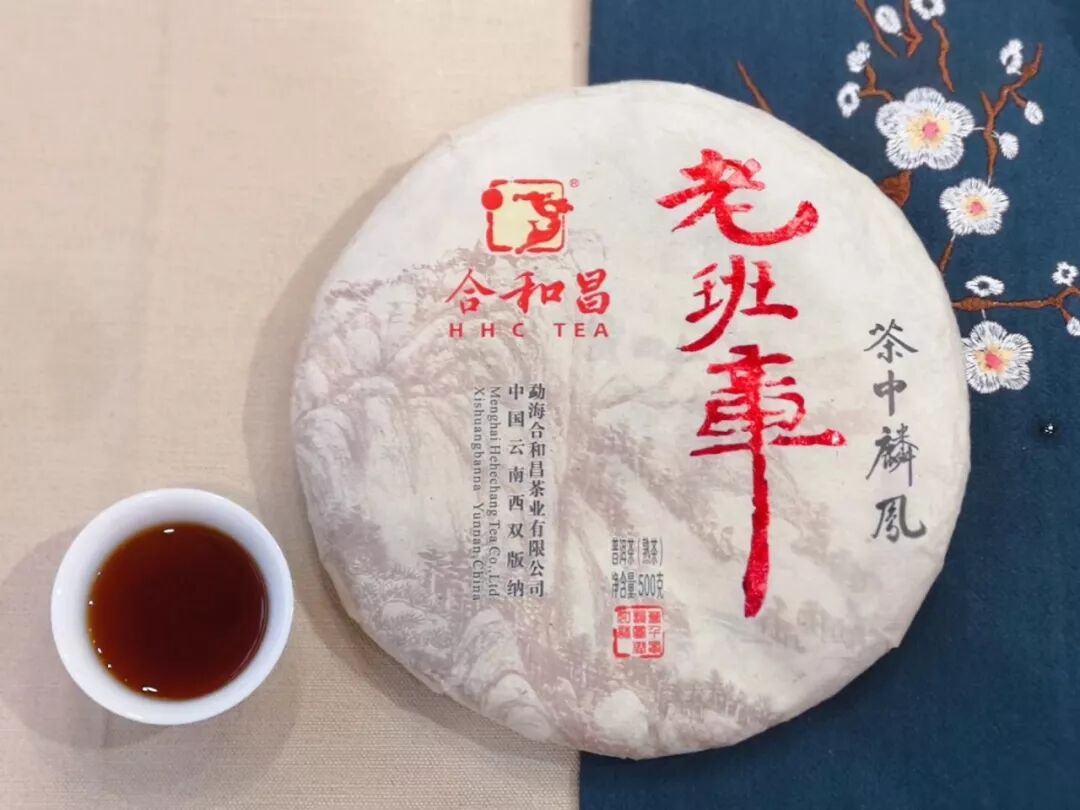 ®
合和昌
HHC TEA
老班章
茶中麟凤
勐海合和昌茶业有限公司
中国云南西双版纳
Menghai Hehechang Tea Co.,Ltd
Xishuangbanna Yunnan,China
普洱茶(熟茶)
净含量:500克